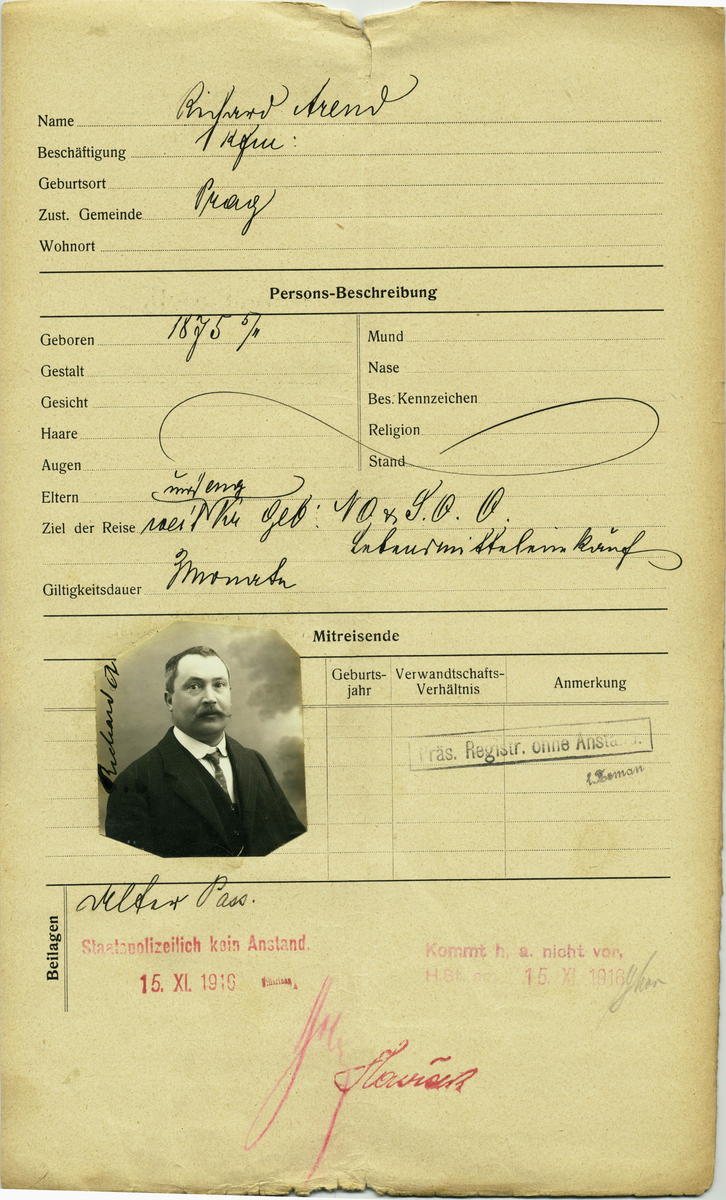 Name Richard Arend
Beschäftigung Kfm:
Geburtsort
Zust. Gemeinde Prag
Wohnort
Persons-Beschreibung
Geboren 1875 5/11
Mund
Gestalt
Nase
Gesicht
Bes. Kennzeichen
Haare
Religion
Augen
Stand
Eltern
Ziel der Reise Geb: N.O. & S.O. O.
Lebensmitteleinkauf
Giltigkeitsdauer 3 Monate
Mitreisende
Geburts-
jahr
Verwandtschafts-
Verhältnis
Anmerkung
Richard A
Präs. Registr. ohne Anstand.
Zeman
Beilagen
Alter Pass.
Staatspolizeilich kein Anstand.
15. XI. 1916
Kommt h. a. nicht vor,
15. XI. 1916
Slaviček